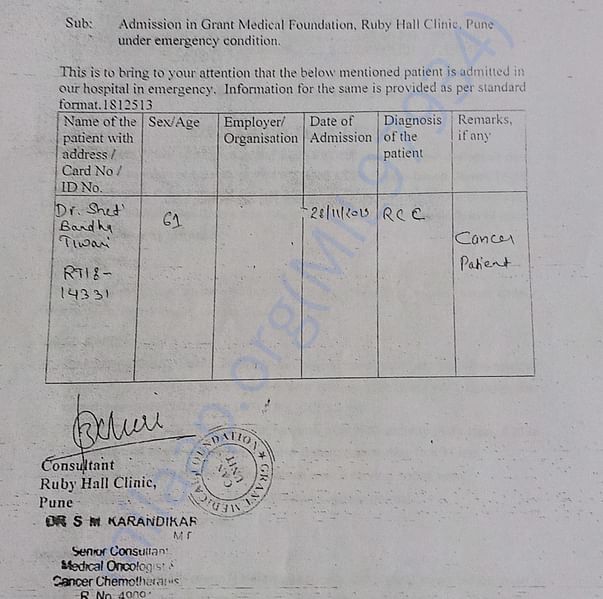 Sub: Admission in Grant Medical Foundation, Ruby Hall Clinic, Pune
under emergency condition.
This is to bring to your attention that the below mentioned patient is admitted in
our hospital in emergency. Information for the same is provided as per standard
format.1812513
Name of the
patient with
address /
Card No /
ID No.
Sex/Age
Employer/
Organisation
Date of
Admission
Diagnosis
of the
patient
Remarks,
if any
Dr. Shet
Bandhu
Tiwari
RT18-
14331
61
RCC
Cancer
Patient
Consultant
Ruby Hall Clinic,
Pune
DR S M KARANDIKAR
Senior Consultant
Medical Oncologist
Cancer Chemotherapis
R. No.
GRANT MEDICAL FOUNDATION
UNIT
milaap.org(MIL97934)